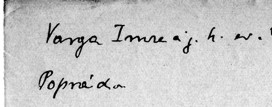 Varga Imre á. j. h. ev.
Poprádon